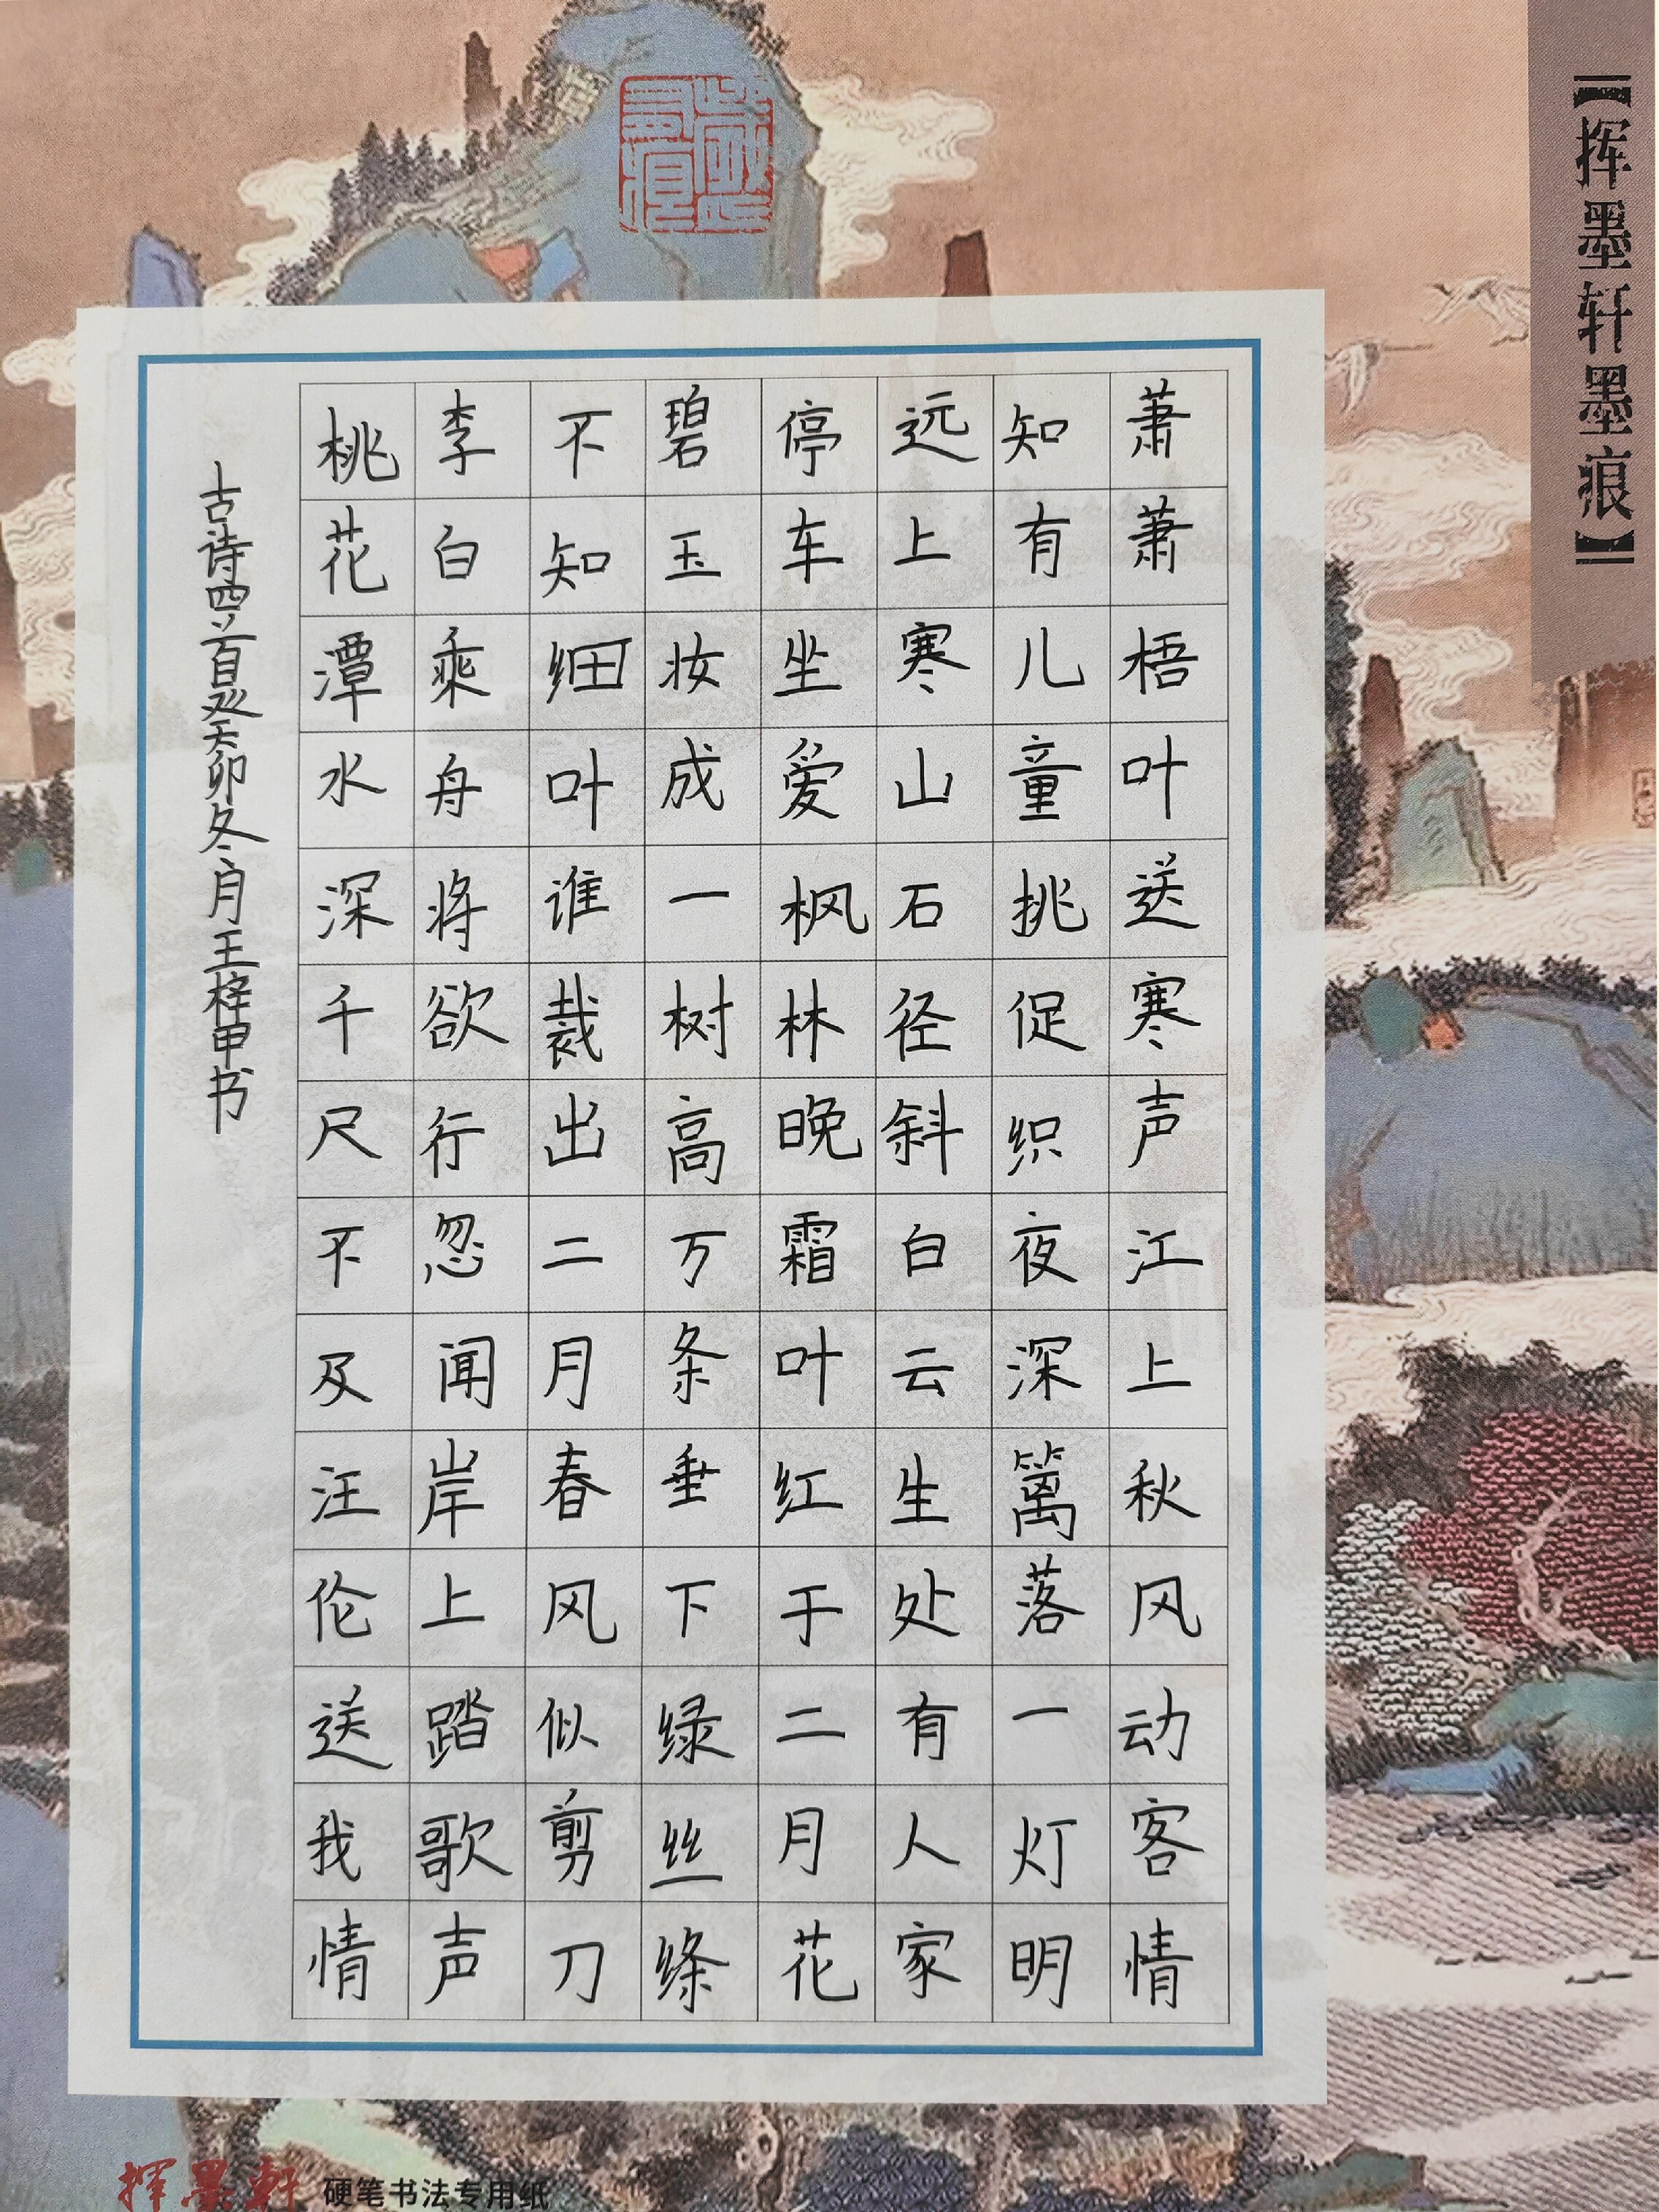 【挥墨轩墨痕】
萧萧梧叶送寒声江上秋风动客情
知有儿童挑促织夜深篱落一灯明
远上寒山石径斜白云生处有人家
停车坐爱枫林晚霜叶红于二月花
碧玉妆成一树高万条垂下绿丝绦
不知细叶谁裁出二月春风似剪刀
李白乘舟将欲行忽闻岸上踏歌声
桃花潭水深千尺不及汪伦送我情
古诗四首癸卯冬月王梓甲书
挥墨轩 硬笔书法专用纸